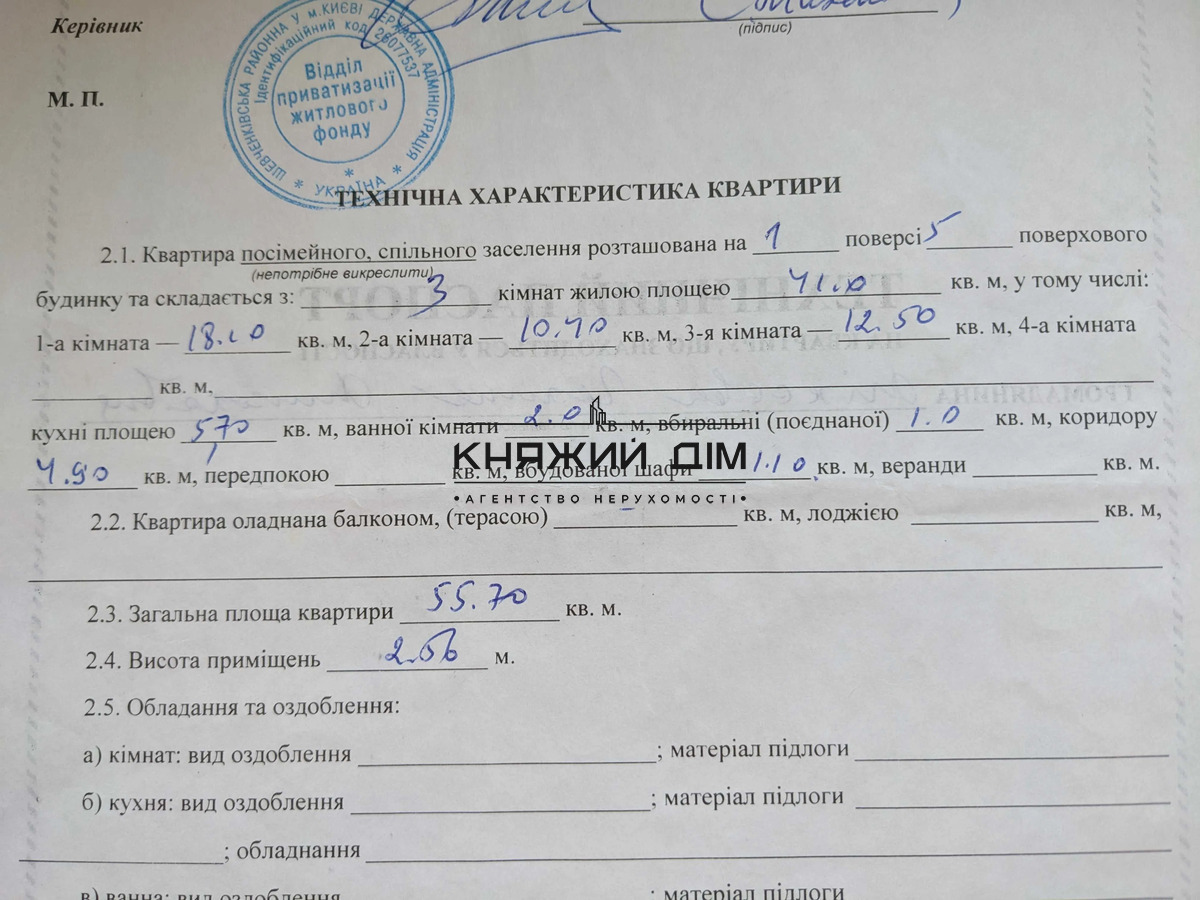 Керівник
(підпис)
М. П.
ШЕВЧЕНКІВСЬКА РАЙОННА У М.КИЄВІ ДЕРЖАВНА АДМІНІСТРАЦІЯ
Ідентифікаційний код 26077537
Відділ
приватизації
житлового
фонду
* УКРАЇНА *
ТЕХНІЧНА ХАРАКТЕРИСТИКА КВАРТИРИ
2.1. Квартира посімейного, спільного заселення розташована на 1 поверсі 5 поверхового
(непотрібне викреслити)
будинку та складається з: 3 кімнат жилою площею 41.0 кв. м, у тому числі:
1-а кімната — 18.10 кв. м, 2-а кімната — 10.40 кв. м, 3-я кімната — 12.50 кв. м, 4-а кімната
кв. м,
кухні площею 5,70 кв. м, ванної кімнати 2.0 кв. м, вбиральні (поєднаної) 1.0 кв. м, коридору
4.90 кв. м, передпокою кв. м, вбудованої шафи 1.10 кв. м, веранди кв. м.
КНЯЖИЙ ДІМ
•АГЕНТСТВО НЕРУХОМОСТІ•
2.2. Квартира оладнана балконом, (терасою) кв. м, лоджією кв. м,
2.3. Загальна площа квартири 55.70 кв. м.
2.4. Висота приміщень 2.56 м.
2.5. Обладання та оздоблення:
а) кімнат: вид оздоблення ; матеріал підлоги
б) кухня: вид оздоблення ; матеріал підлоги
; обладнання
в) ванна: вид оздоблення ; матеріал підлоги